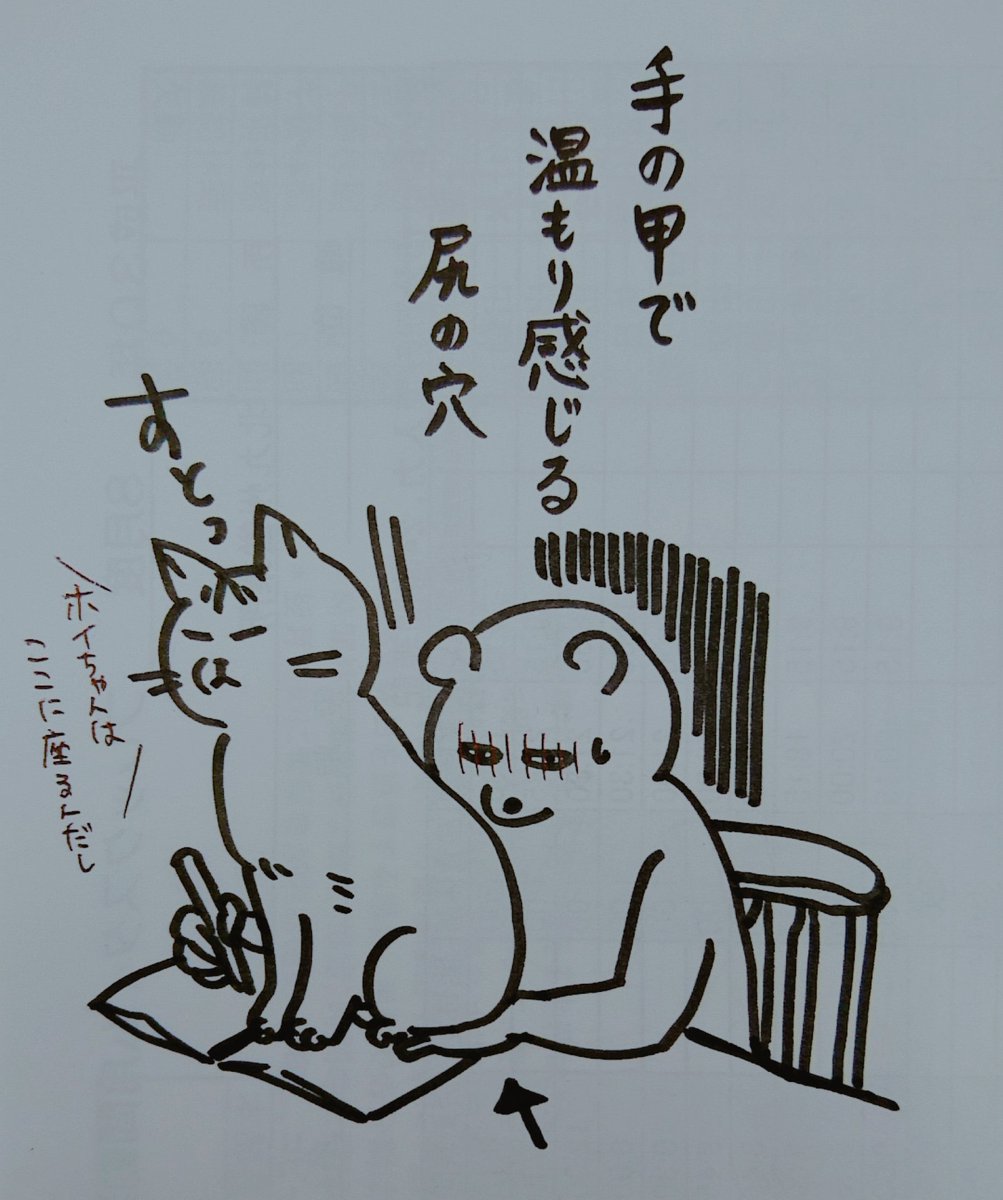 手の甲で
温もり感じる
尻の穴
すとっ
ホイちゃんは
ここに座るんだし